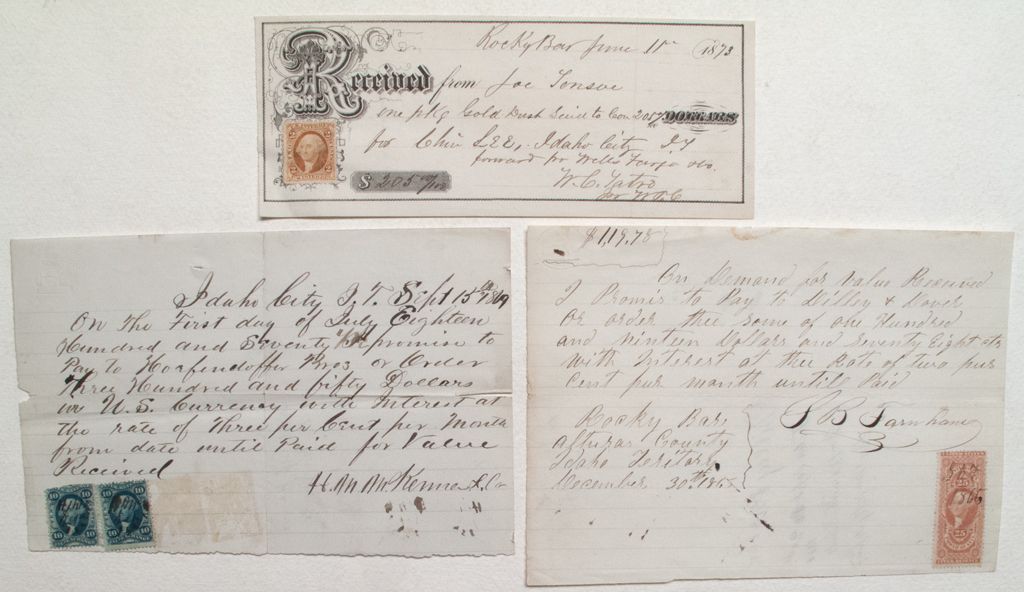 Rocky Bar June 11th 1873
Received from Joe
one pkg Gold Dust Said to Con 205 DOLLARS
for Chin LEE, Idaho City I.T
forward pr Wells Fargo &Co.
$ 205 00/100
W.C. Tatro
pr W.T.C
Idaho City I.T. Sept 15th 1869
On the First day of July Eighteen
Hundred and Seventy promise to
Pay to Bros or Order
Three Hundred and fifty Dollars
in U.S. Currency with Interest at
the rate of three per Cent per Month
from date until Paid for Value
Received
H. M. & Co
10 10
10 10
$119.78
On Demand for Value Received
I Promis to Pay to & Dover
or order thee some of one Hundred
and ninteen Dollars and Seventy Eight cts
with Interest at thee Rate of two pur
cent pur month untill Paid
Rocky Bar
County
Idaho Teritory
December 30th
S B Farnham
25 25